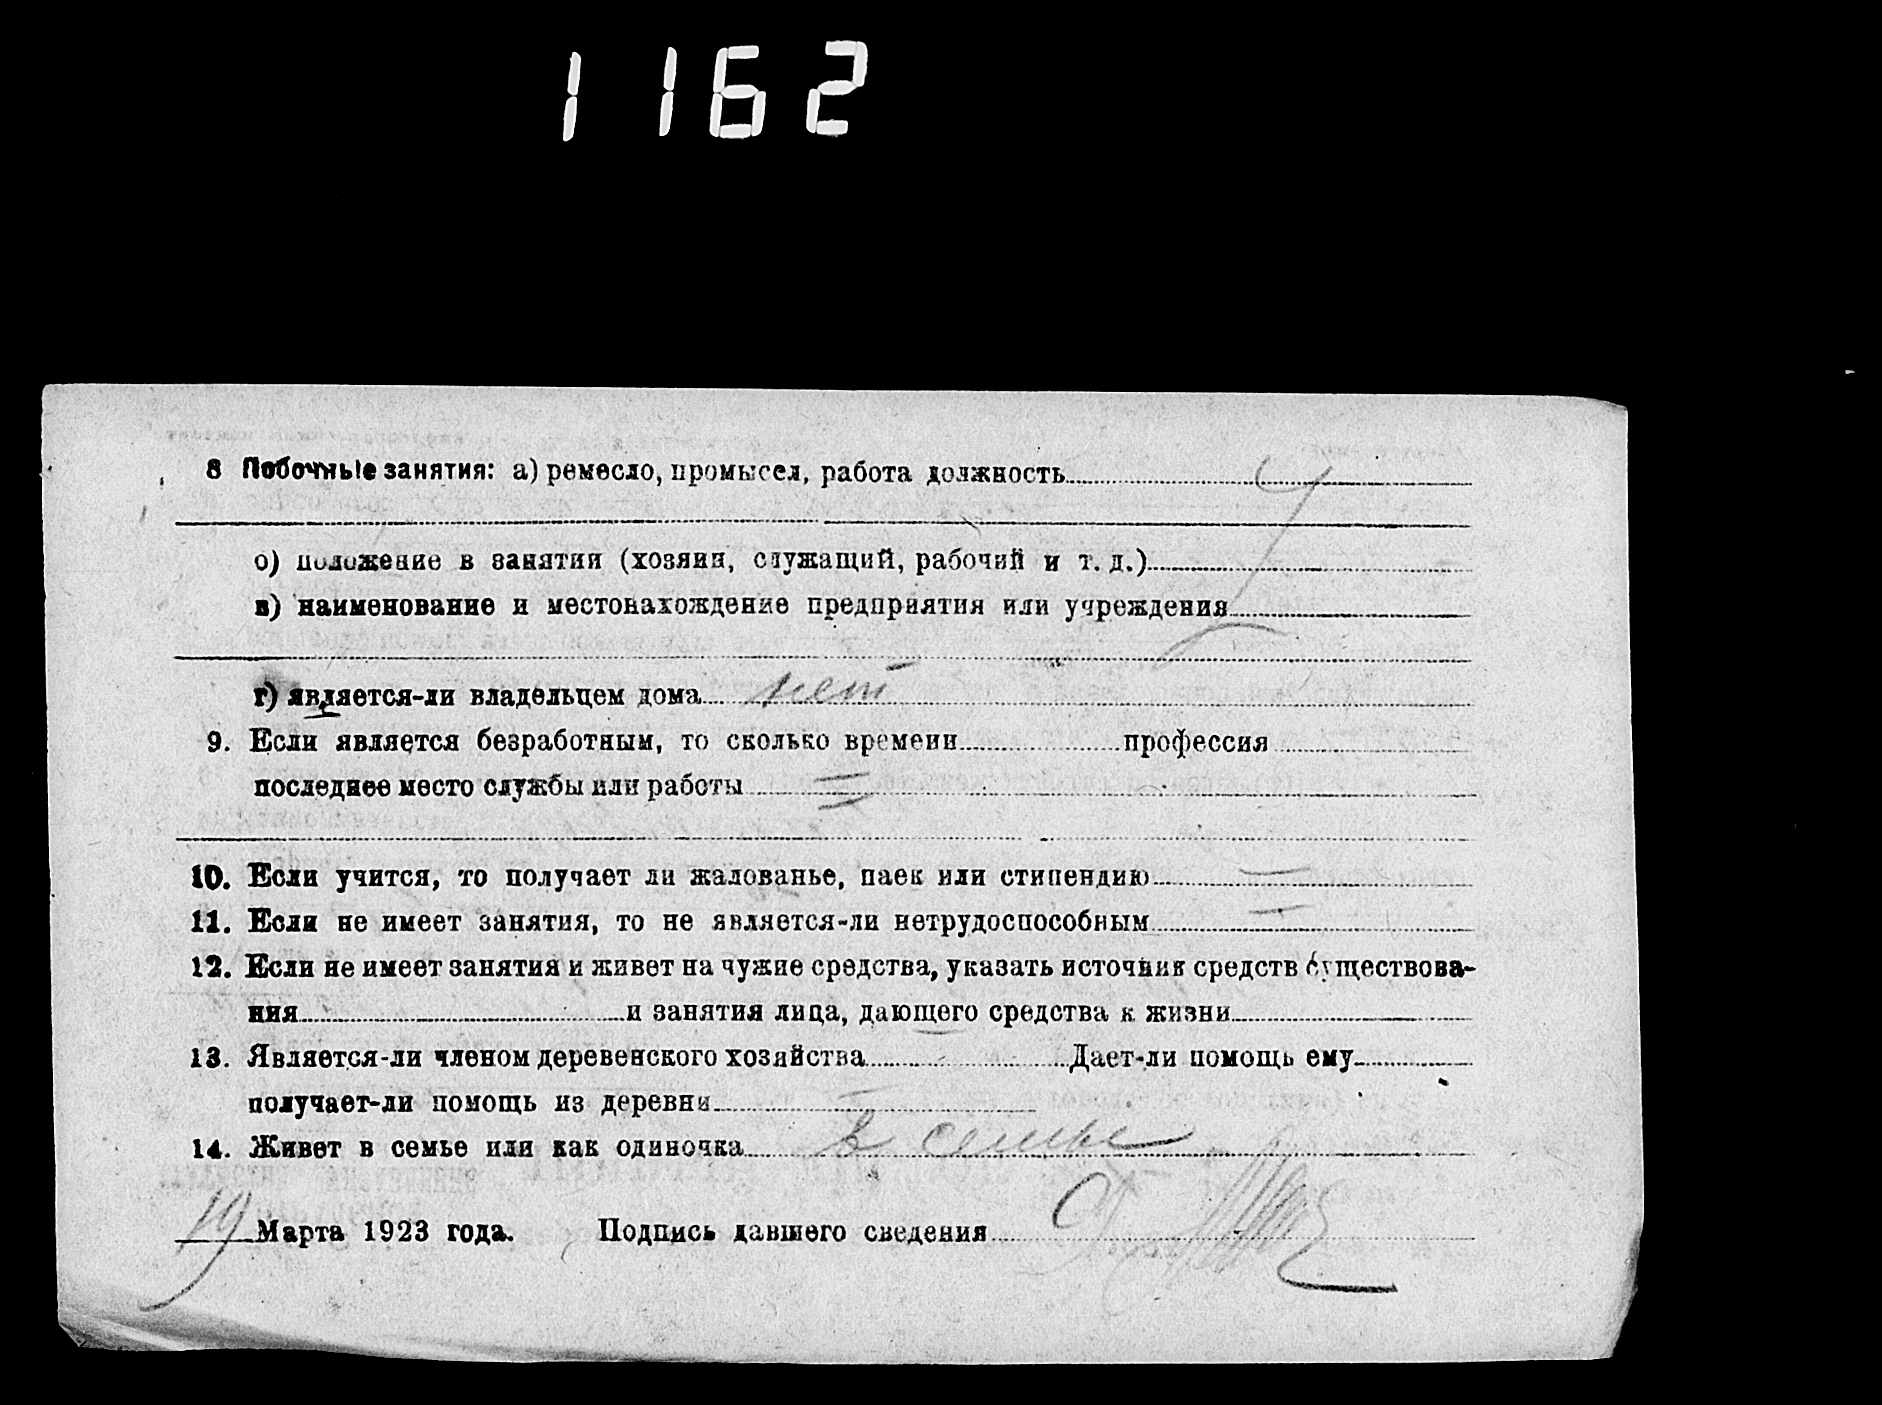 1162
8 Побочные занятия: а) ремесло, промысел, работа должность
о) положение в занятии (хозяин, служащий, рабочий и т. д.)
в) наименование и местонахождение предприятия или учреждения
г) является-ли владельцем дома нет
9. Если является безработным, то сколько времени профессия
последнее место службы или работы =
10. Если учится, то получает ли жалованье, паек или стипендию
11. Если не имеет занятия, то не является-ли нетрудоспособным
12. Если не имеет занятия и живет на чужие средства, указать источник средств существова-
ния и занятия лица, дающего средства к жизни
13. Является-ли членом деревенского хозяйства Дает-ли помощь ему
получает-ли помощь из деревни
14. Живет в семье или как одиночка в семье
19 Марта 1923 года. Подпись давшего сведения